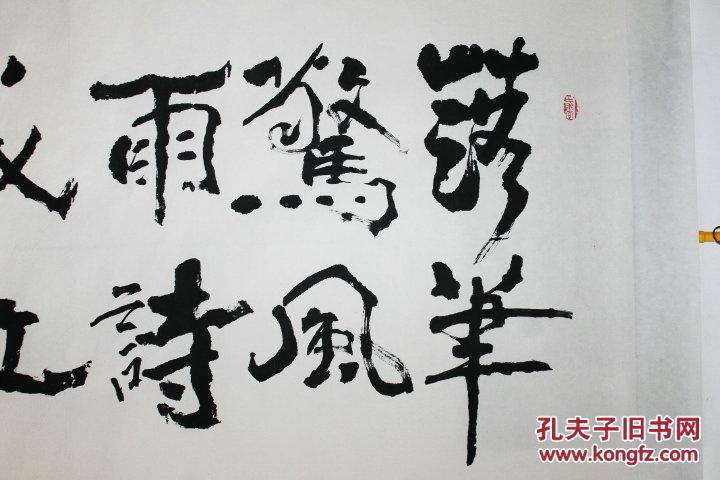 落筆
驚風
雨詩
孔夫子旧书网
www.kongfz.com